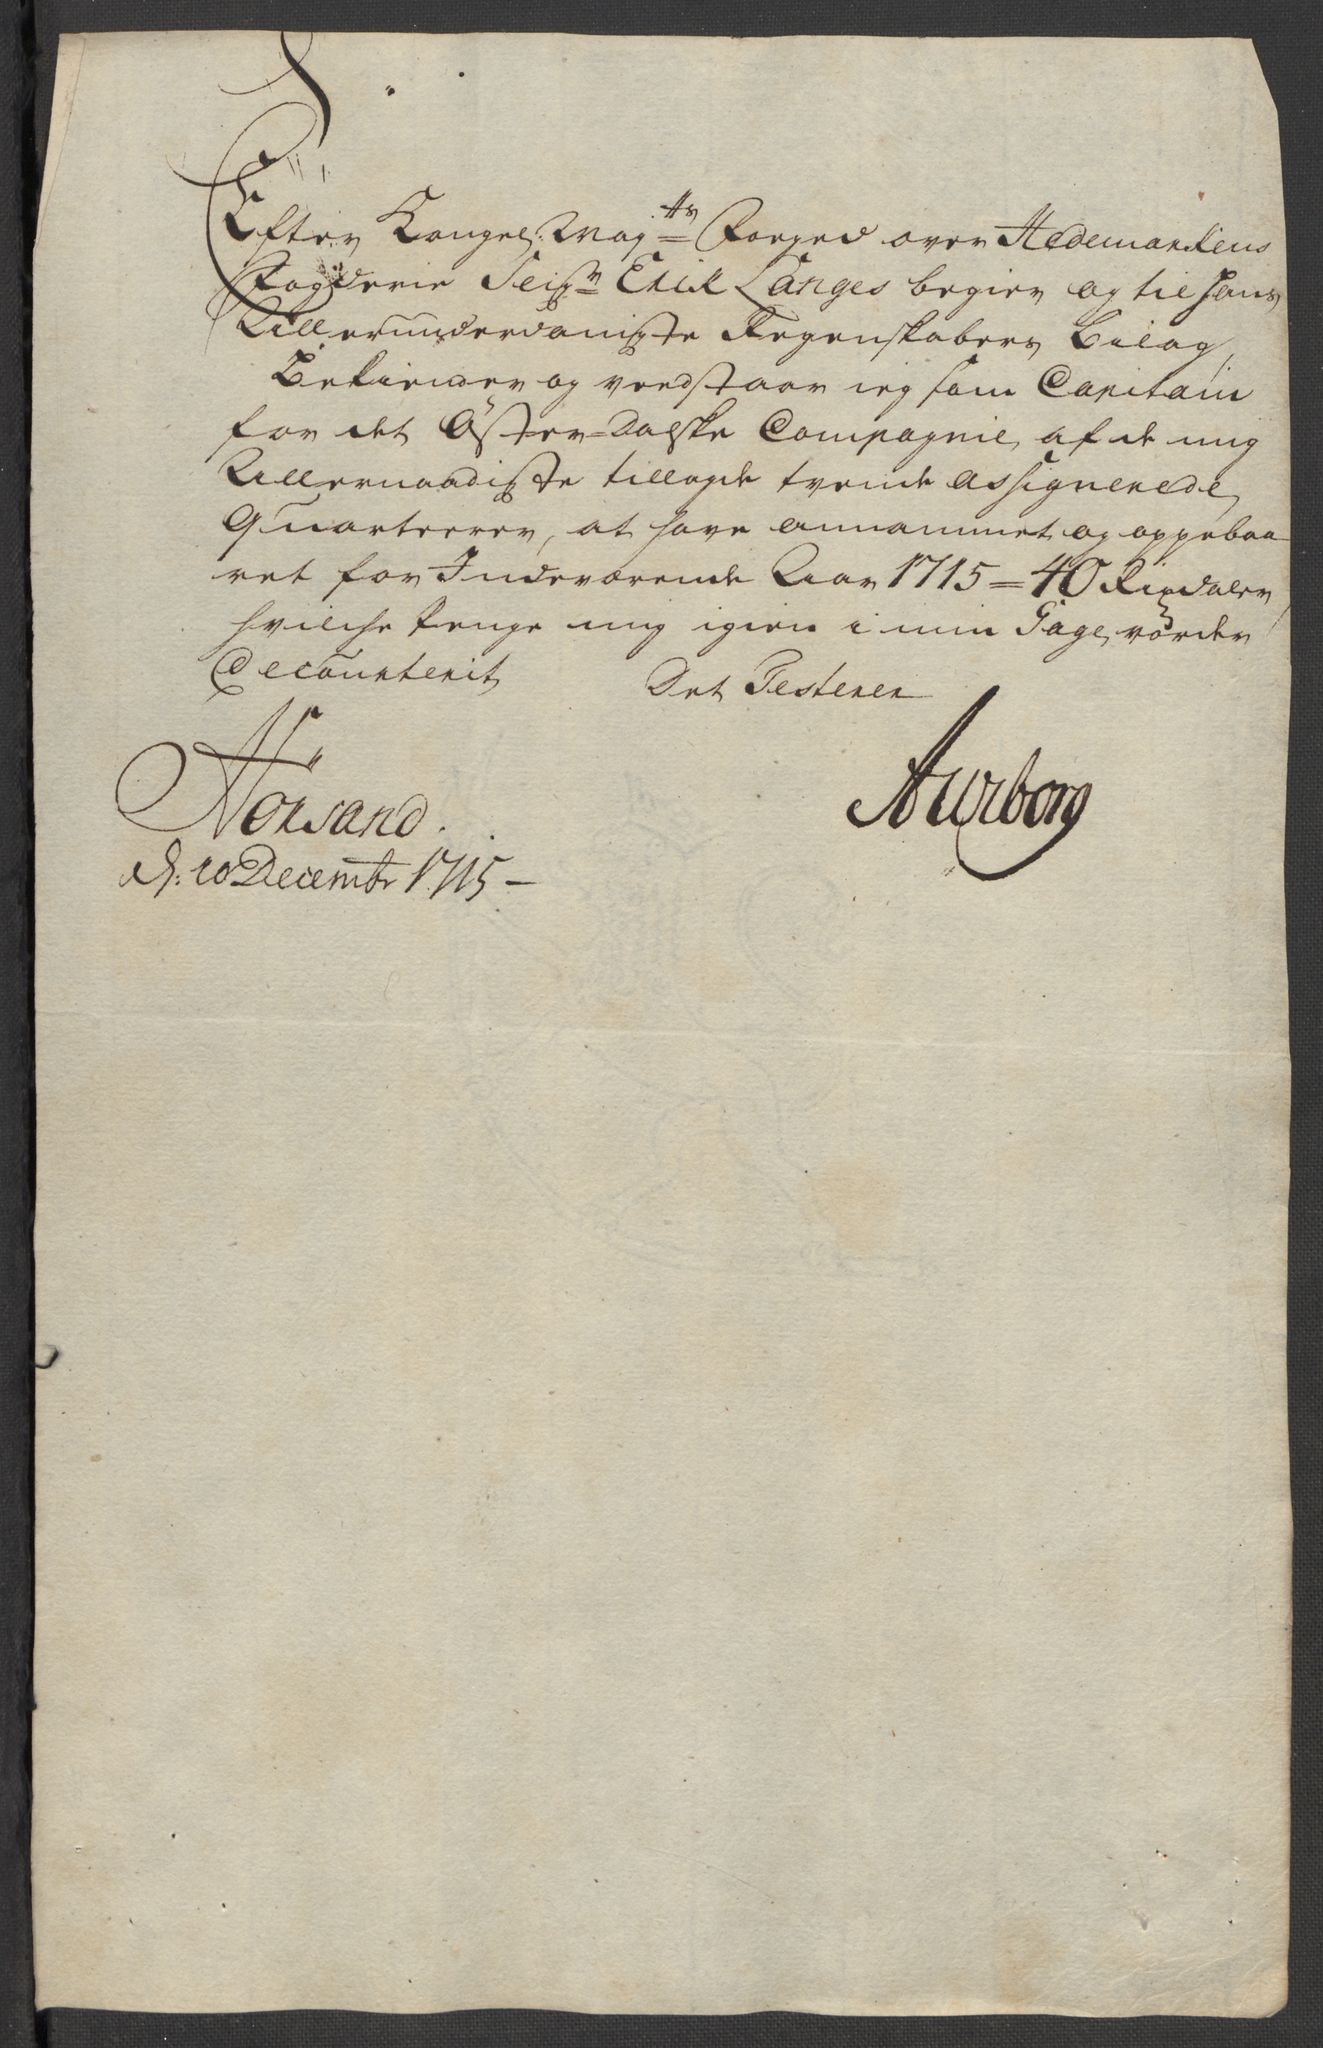 Efter Kongel: May:ts Foeged over Hedemarkens
Fogderie Seigr Erick Langes begier og til hans
Allerunderdanigste Regenskabers Bilag,
Bekiender og vedstaar ieg som Capitain
for det Öster-Dalske Compagnie, af de mig
Allernaadigste tillagde tvende assignerede
Quarteerer, at have annammet og oppebaa-
ret for Indeværende Aar 1715 = 40 Rixdaler,
hvilche Penge mig igien i min Gage vorder
Decourterit, Det Testerer
Norsand.
d: 10 Decembr 1715 -